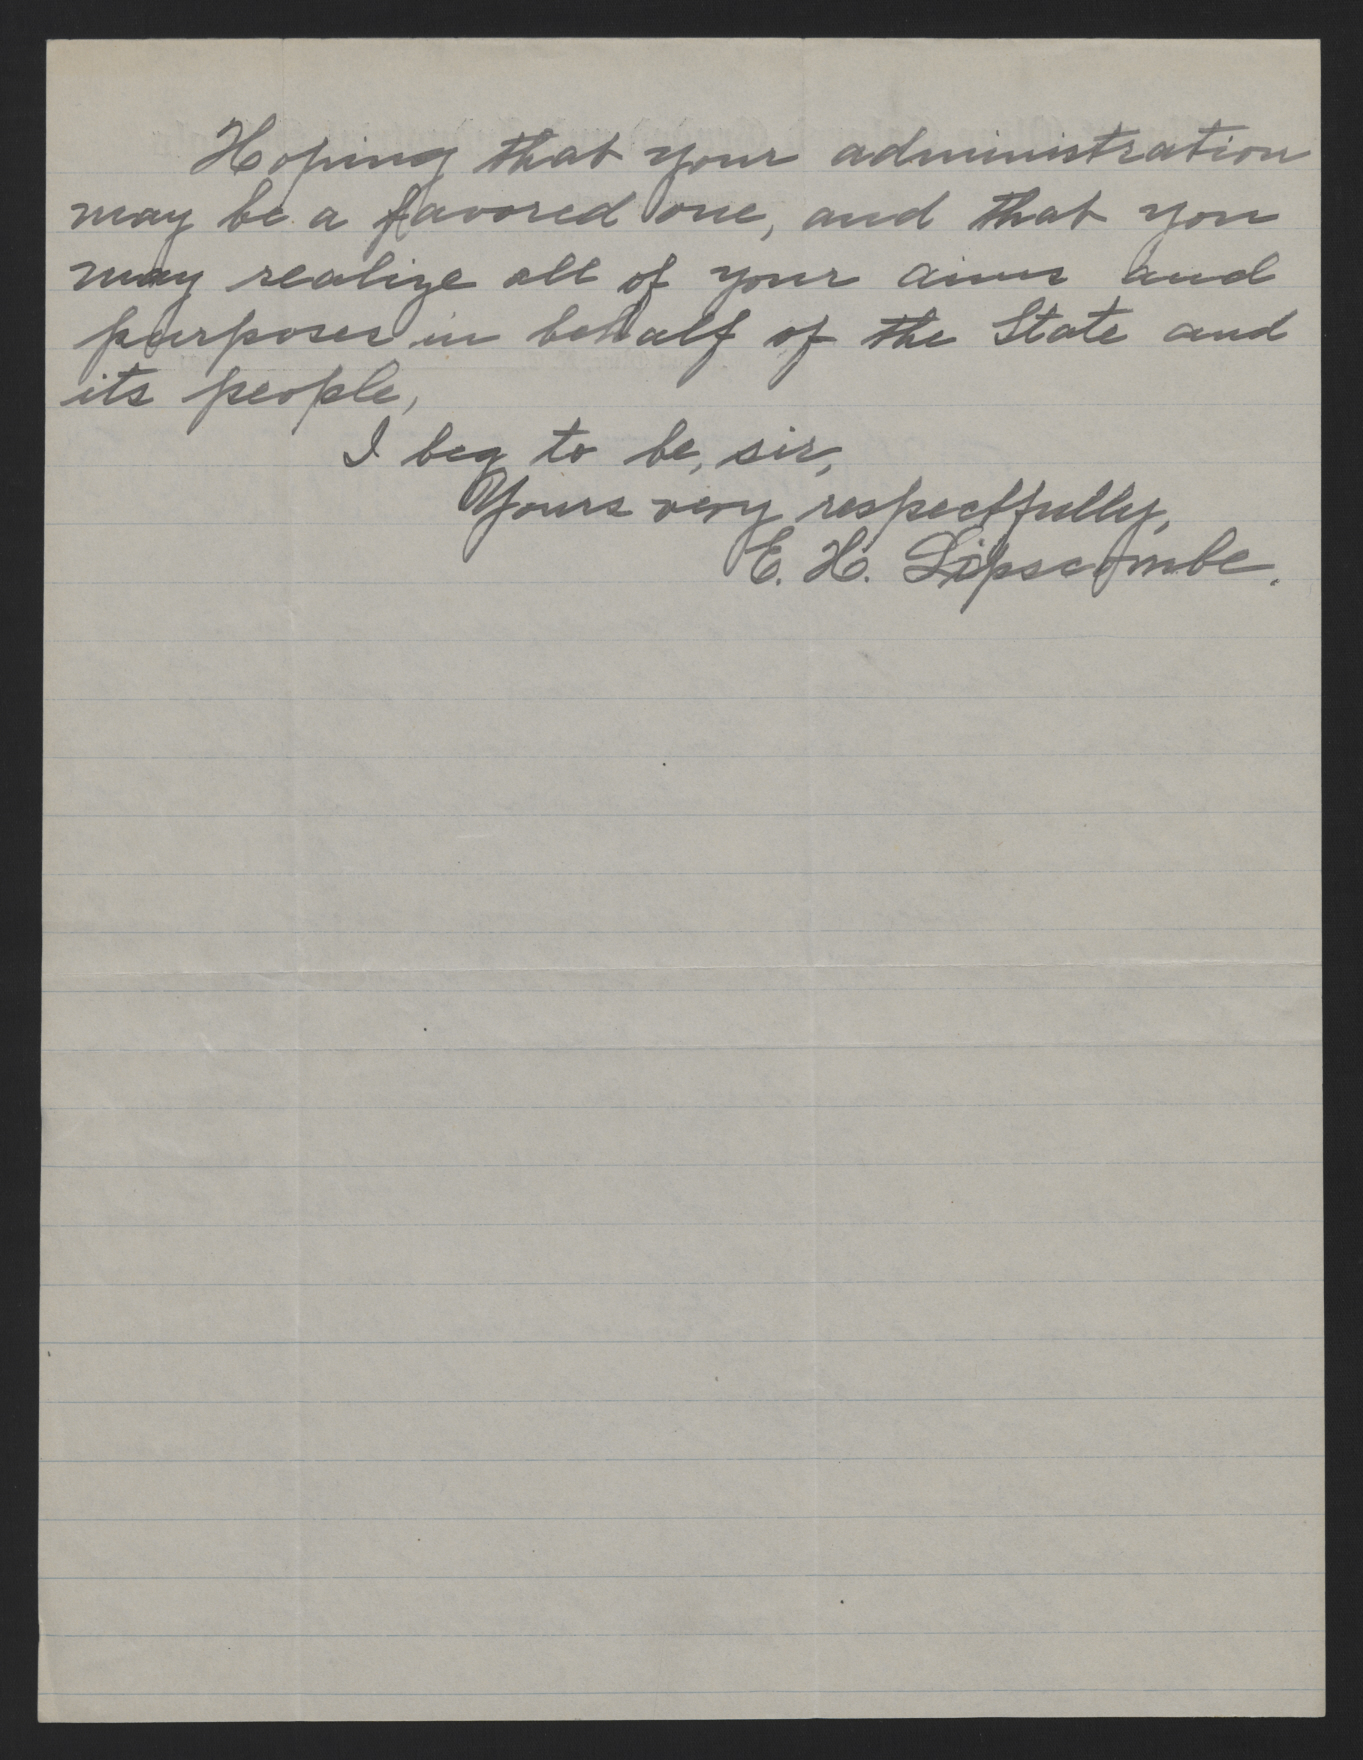 Hoping that your administration
may be a favored one, and that you
may realize all of your aims and
purposes in behalf of the State and
its people,
I beg to be, sir,
Yours very respectfully,
E. H. Lipscombe.